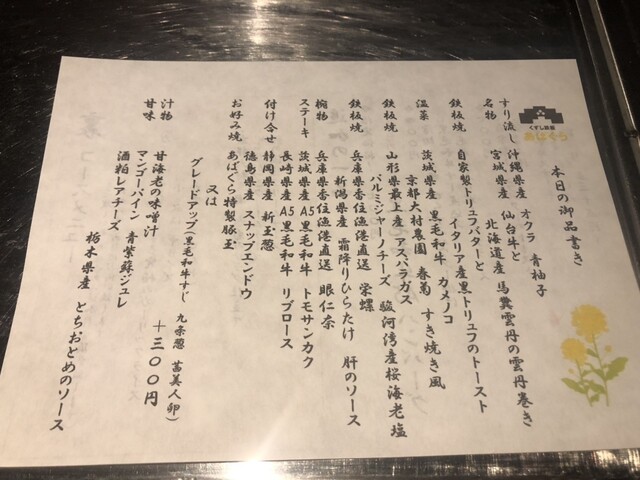 くずし鉄板
あばぐら
本日の御品書き
すり流し 沖縄県産 オクラ 青柚子
名物 宮城県産 仙台牛と
北海道産 馬糞雲丹の雲丹巻き
鉄板焼 自家製トリュフバターと
イタリア産黒トリュフのトースト
温菜 茨城県産 黒毛和牛 カメノコ
京都大村農園 春菊 すき焼き風
鉄板焼 山形県最上産 アスパラガス
パルミジャーノチーズ 駿河湾産桜海老塩
鉄板焼 兵庫県香住漁港直送 栄螺
新潟県産 霜降りひらたけ 肝のソース
椀物 兵庫県香住漁港直送 眼仁奈
ステーキ 茨城県産A5黒毛和牛 トモサンカク
長崎県産A5黒毛和牛 リブロース
付け合せ 静岡県産 新玉葱
徳島県産 スナップエンドウ
お好み焼 あばぐら特製豚玉
又は
グレードアップ(黒毛和牛すじ 九条葱 茜美人卵)
+三〇〇円
汁物 甘海老の味噌汁
甘味 マンゴーパイン 青紫蘇ジュレ
酒粕レアチーズ
栃木県産 とちおとめのソース